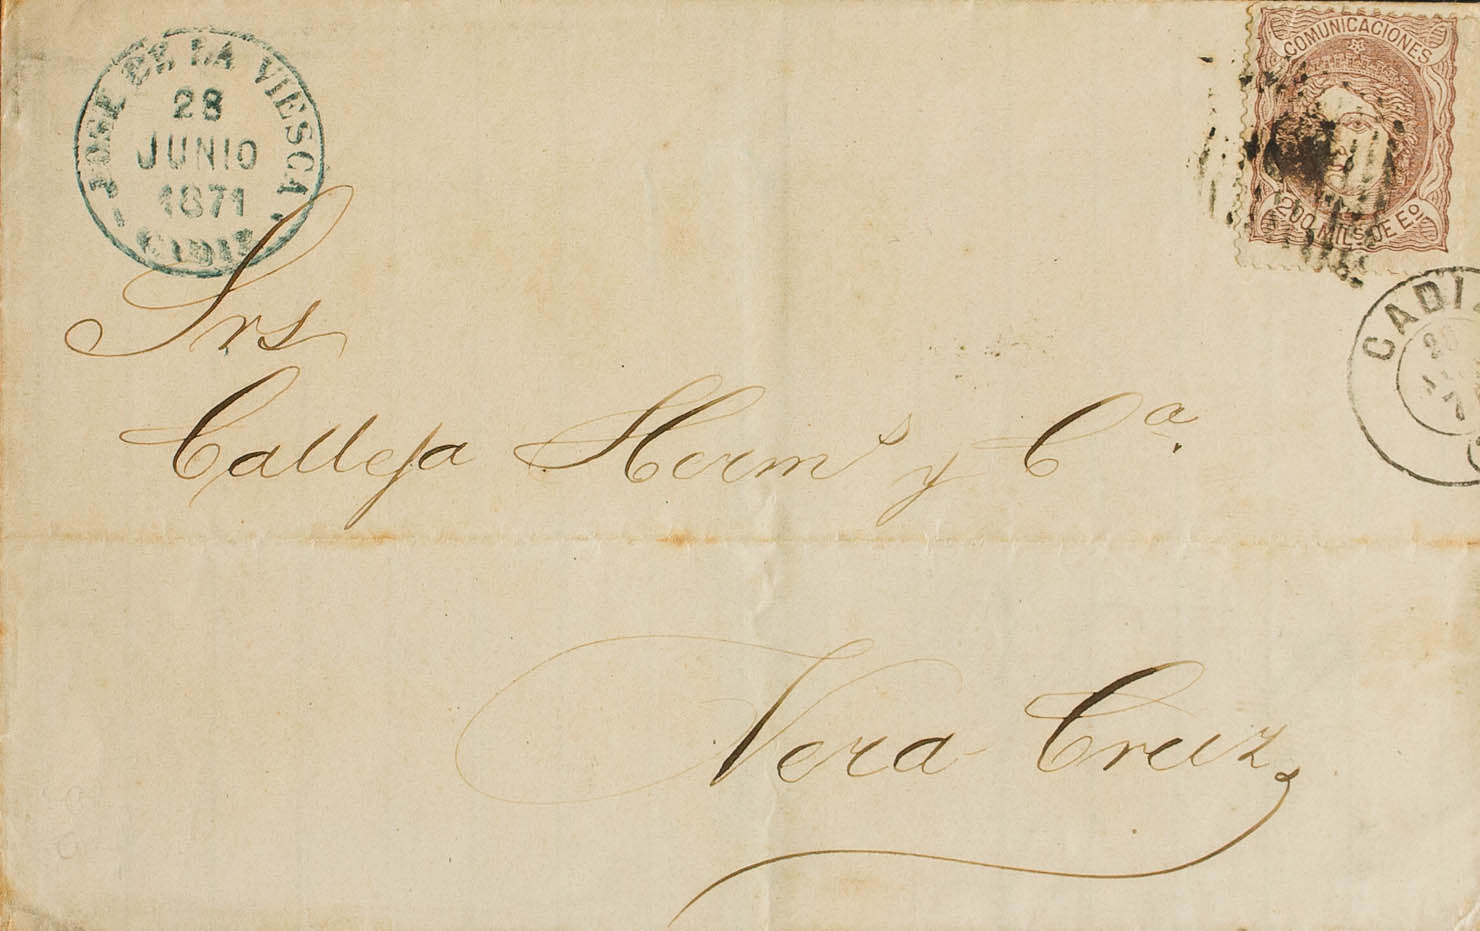 JOSE DE LA VIESCA
28
JUNIO
1871
CADIZ
COMUNICACIONES
200 MILS DE Eº
CADIZ
Srs
Calleja Hermˢ y Cª
Vera Cruz